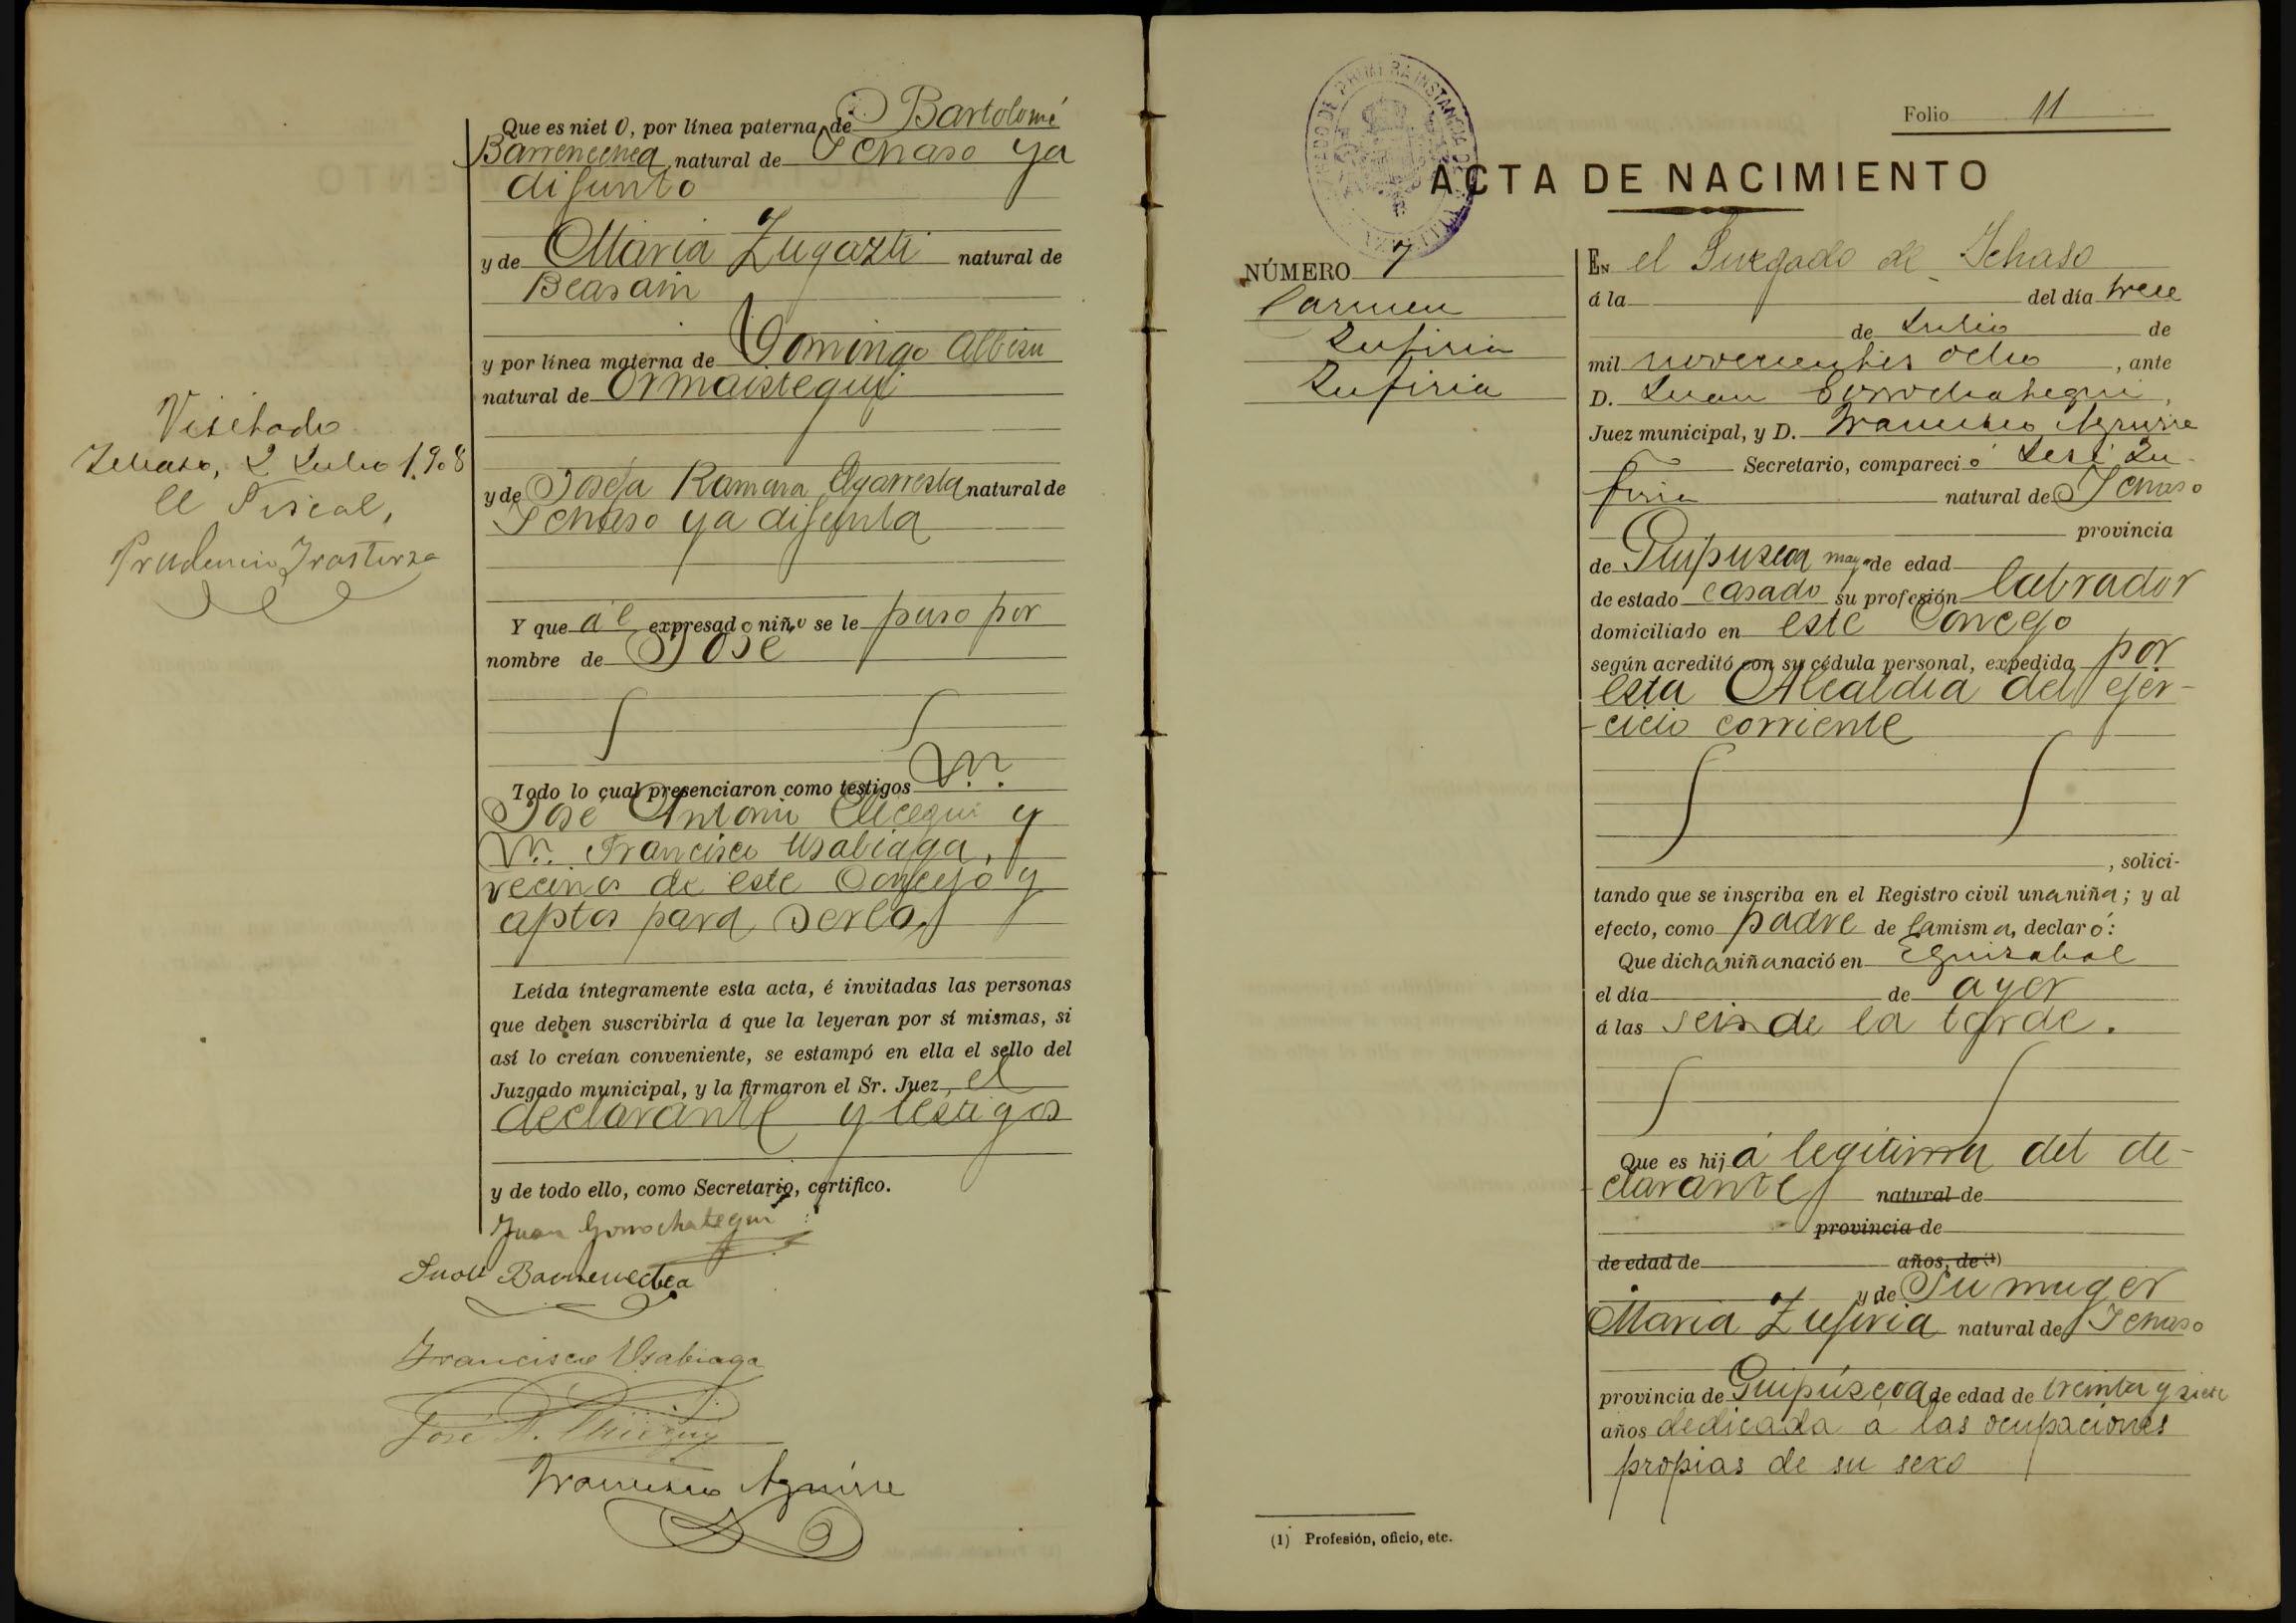 Que es niet o, por línea paterna, de D Bartolomé
Barrenechea natural de Ichaso ya
difunto
y de Maria Zugazti natural de
Beasain
y por línea materna de Domingo Albisu
natural de Ormaistegui
y de Josefa Ramona Ygarresta natural de
Ichaso ya difunta
Y que á él expresado niño se le puso por
nombre de José
Todo lo cual presenciaron como testigos
José Antonio y
Francisco Usabiaga,
vecinos de este Concejo y
aptos para serlo.
Leída íntegramente esta acta, é invitadas las personas
que deben suscribirla á que la leyeran por sí mismas, si
así lo creían conveniente, se estampó en ella el sello del
Juzgado municipal, y la firmaron el Sr. Juez, el
declarante y testigos
y de todo ello, como Secretario, certifico.
Juan Gorrochategui
Barrenechea
Francisco Usabiaga
José A.
Francisco Aguirre
Visitado
Ichaso, 2 Julio 1908
El Fiscal,
Prudencio Irastorza
JUZGADO DE PRIMERA INSTANCIA DE
Folio 11
ACTA DE NACIMIENTO
NÚMERO 7
Carmen
Zufiria
Zufiria
EN el Juzgado de Ichaso
á la del día trece
de Julio de
mil novecientos ocho, ante
D. Juan Gorrochategui,
Juez municipal, y D. Francisco Aguirre
Secretario, compareció José Zu-
firia natural de Ichaso
provincia
de Guipuzcoa may.r de edad
de estado casado su profesión labrador
domiciliado en este Concejo
según acreditó con su cédula personal, expedida por
esta Alcaldia del ejer-
cicio corriente
, solici-
tando que se inscriba en el Registro civil una niña; y al
efecto, como padre de la misma, declaró:
Que dicha niña nació en Eguizabal
el día de ayer
á las seis de la tarde.
Que es hija legitima del de-
clarante natural de
provincia de
de edad de años, de (1)
y de su muger
Maria Zufiria natural de Ichaso
provincia de Guipúzcoa de edad de treinta y siete
años dedicada a las ocupaciones
propias de su sexo
(1) Profesión, oficio, etc.